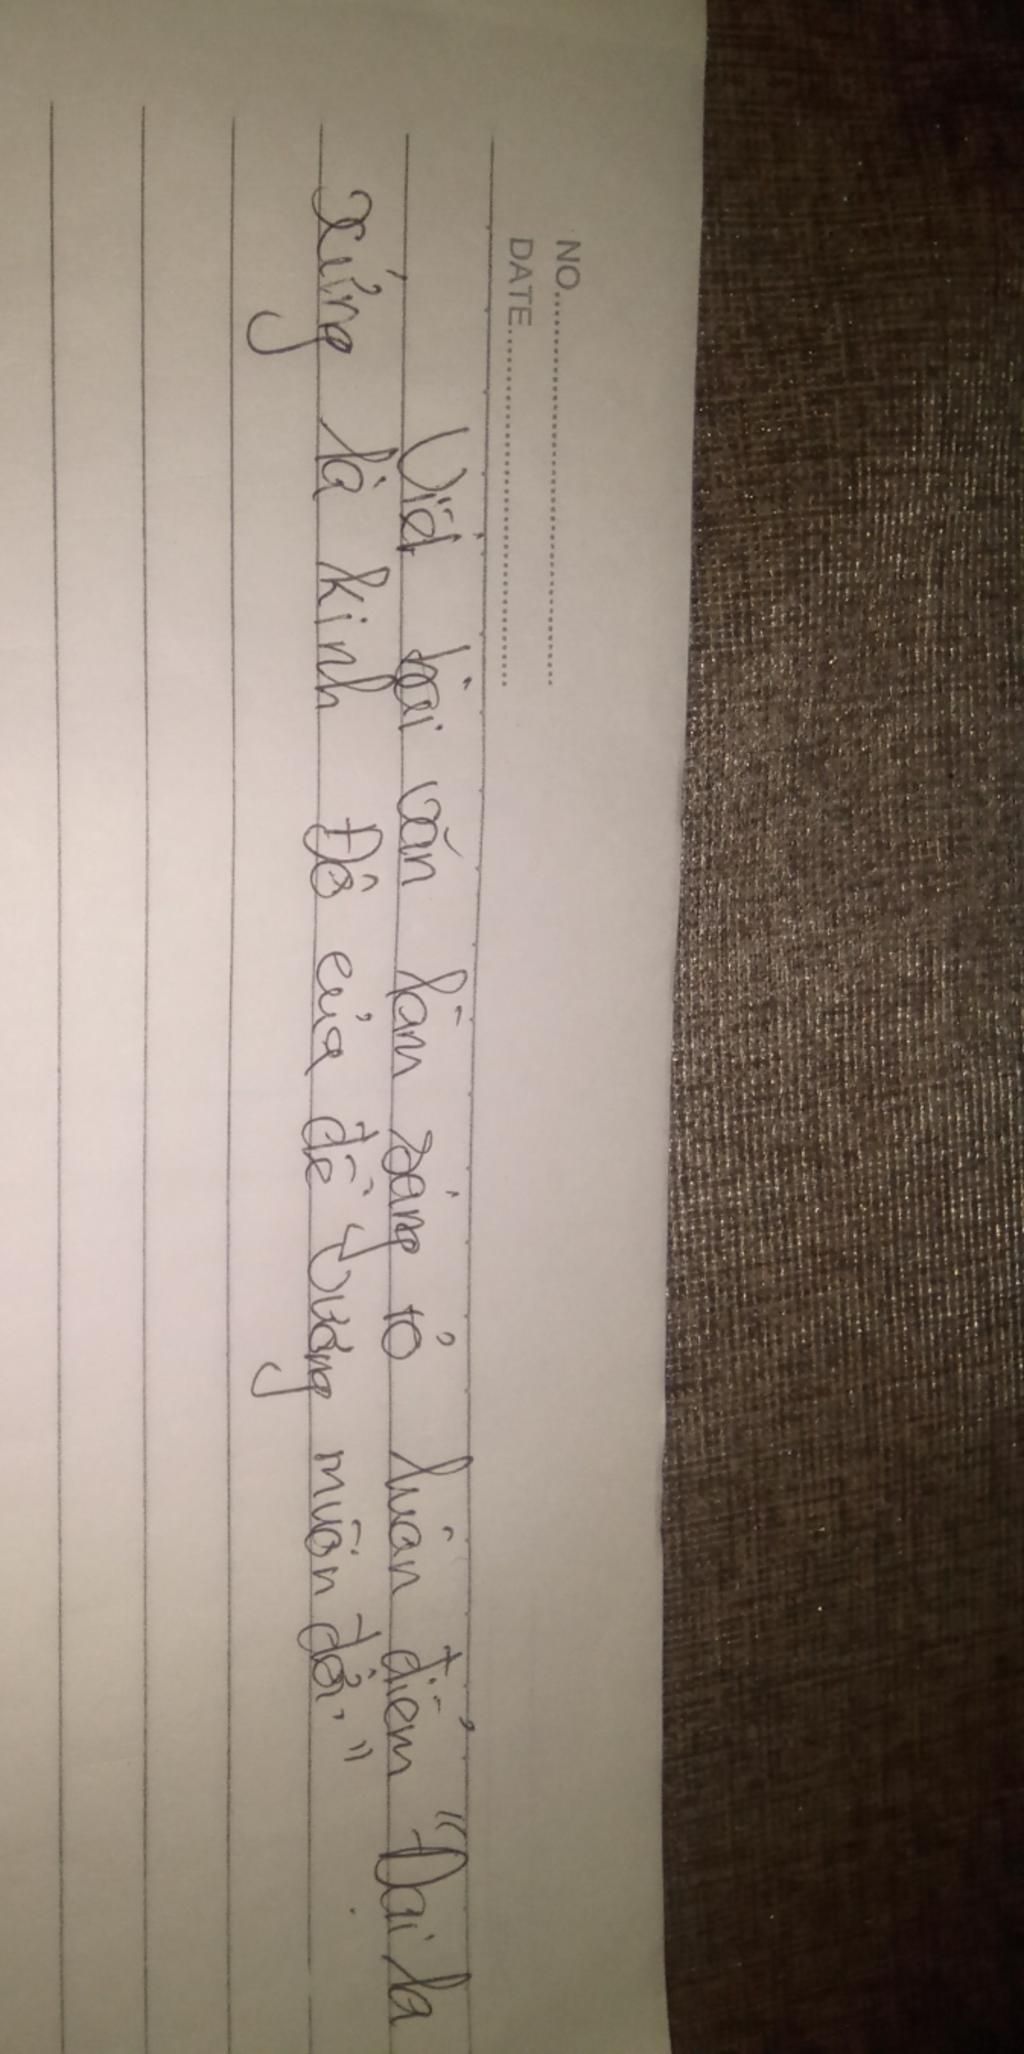 NO.
DATE.
Viết bài văn làm sáng tỏ luận điểm "Đại la
xứng là kinh Đô của đế Vương muôn đời."